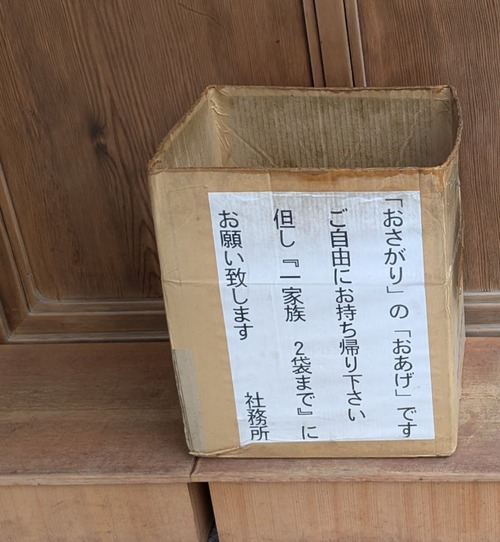 「おさがり」の「おあげ」です
ご自由にお持ち帰り下さい
但し『一家族　2袋まで』に
お願い致します
社務所